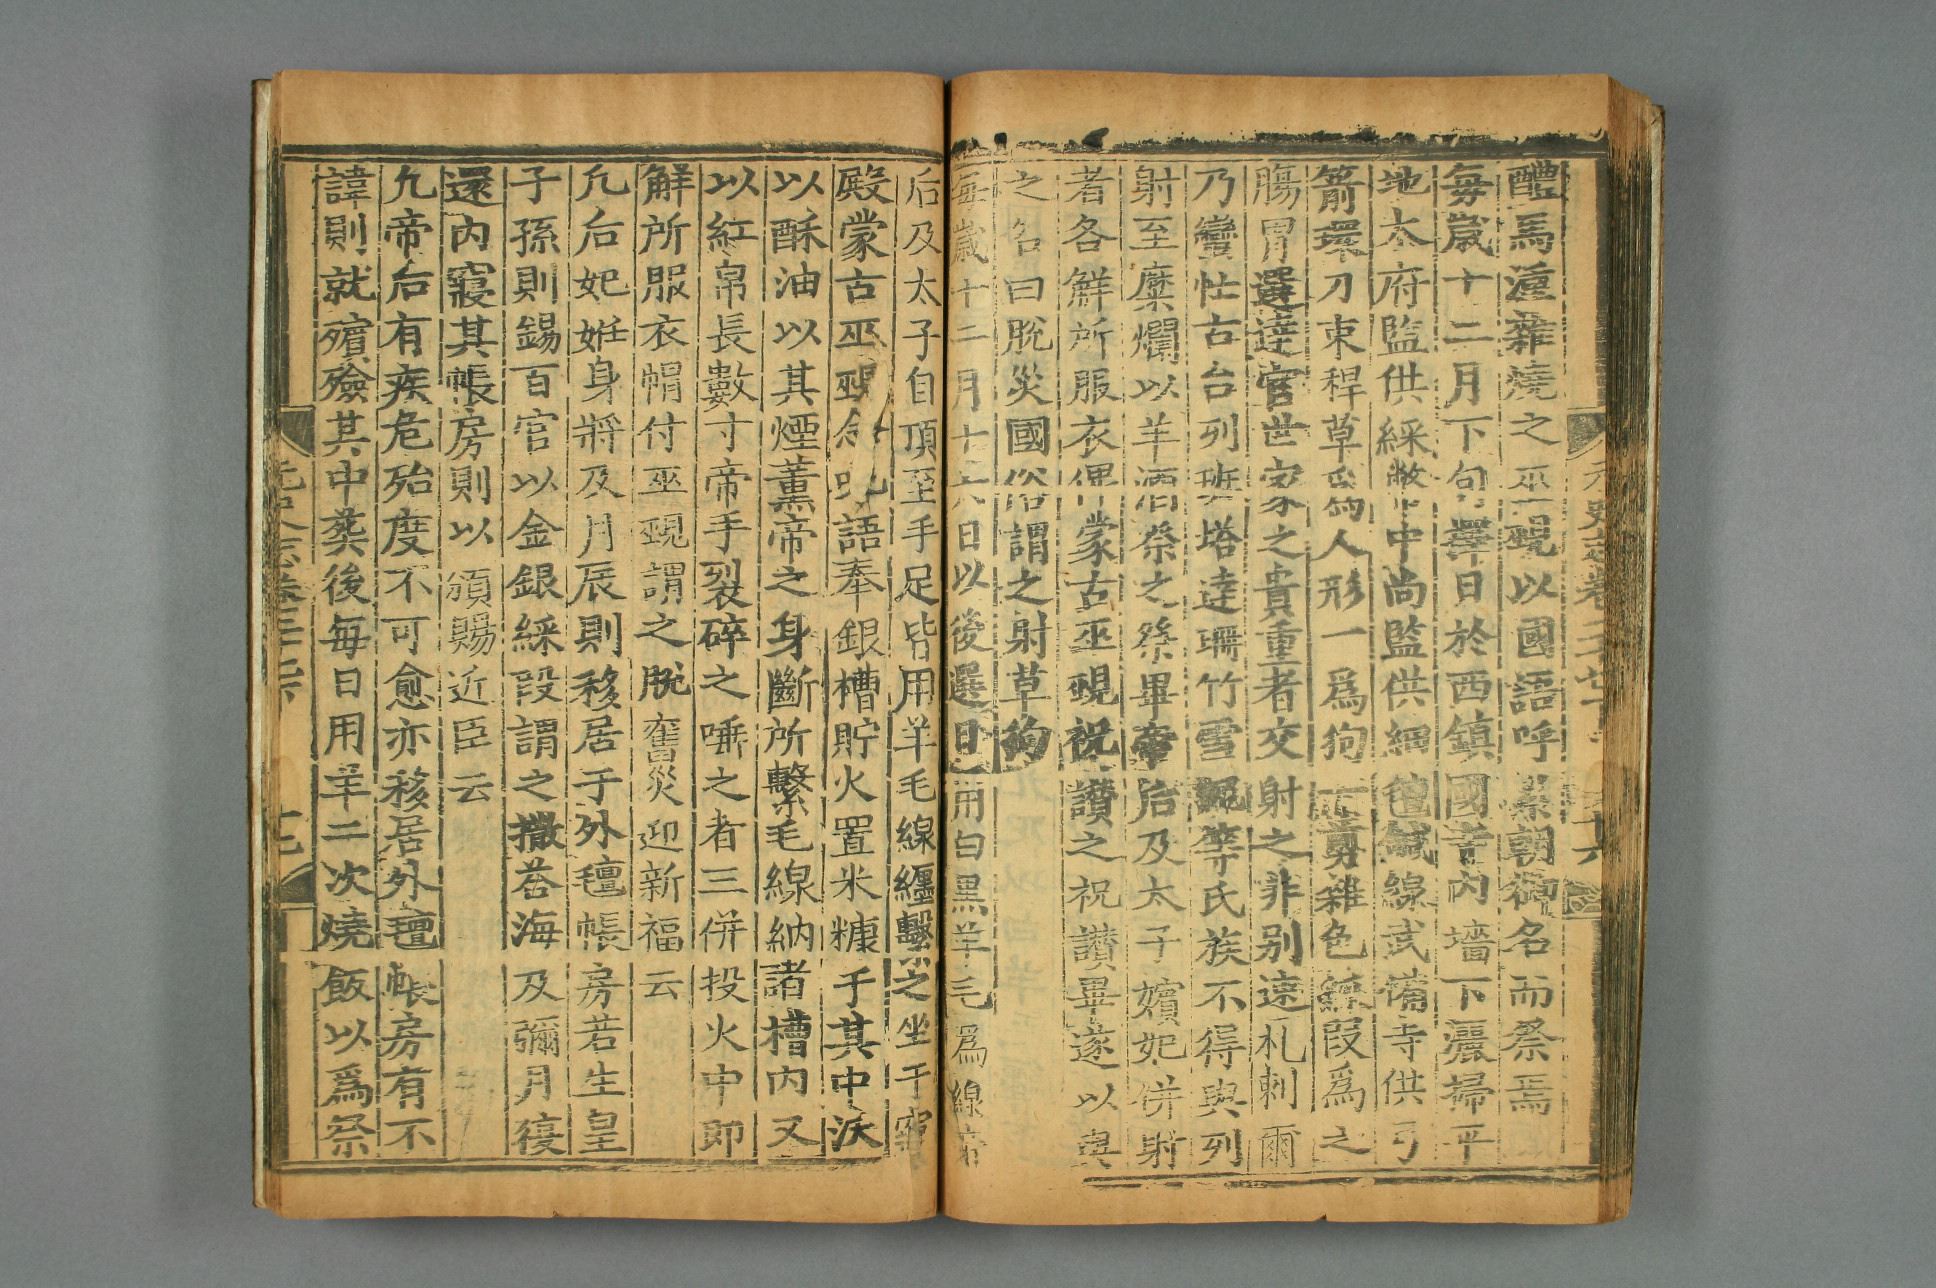 醴馬湩雜燒之巫覡以國語呼累朝御名而祭焉
每歲十二月下旬擇日於西鎮國寺內墻下灑掃平
地太府監供綵幣中尚監供細氊鍼線武備寺供弓
箭環刀束稈草爲人形一爲狗一剪雜色綵段爲之
腸胃選達官世家之貴重者交射之非别速札剌爾
乃蠻忙古台列班塔達珊竹雪泥等氏族不得與列
射至糜爛以羊酒祭之祭畢帝后及太子嬪妃併射
者各解所服衣俾蒙古巫覡祝讃之祝讃畢遂以與
之名曰脫災國俗謂之射草狗
每歲十二月十六日以後選日用白黑羊毛爲線帝
后及太子自頂至手足皆用羊毛線纏繫之坐于寢
殿蒙古巫覡念呪語奉銀槽貯火置米糠于其中沃
以酥油以其煙薰帝之身斷所繫毛線納諸槽内又
以紅帛長數寸帝手裂碎之唾之者三併投火中即
解所服衣帽付巫覡謂之脫舊災迎新福云
凡后妃姙身將及月辰則移居于外氊帳房若生皇
子孫則錫百官以金銀綵段謂之撒荅海及彌月復
還内寢其帳房則以頒賜近臣云
凡帝后有疾危殆度不可愈亦移居外氊帳房有不
諱則就殯殮其中葬後每日用羊二次燒飯以爲祭